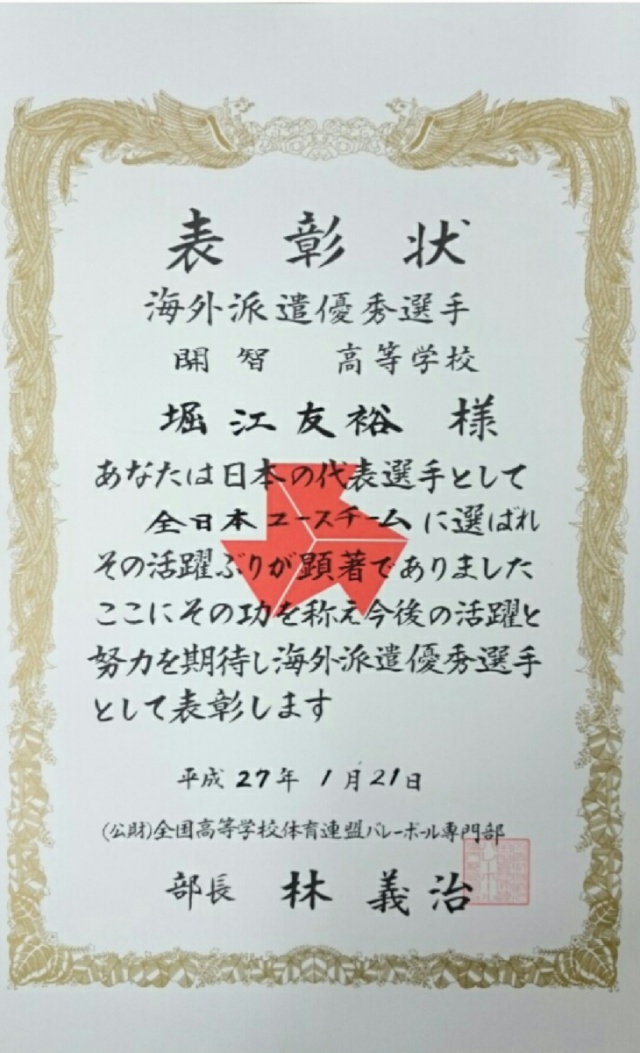 表彰状
海外派遣優秀選手
開智 高等学校
堀江友裕 様
あなたは日本の代表選手として
全日本ユースチームに選ばれ
その活躍ぶりが顕著でありました
ここにその功を称え今後の活躍と
努力を期待し海外派遣優秀選手
として表彰します
平成27年1月21日
(公財)全国高等学校体育連盟バレーボール専門部
部長 林義治